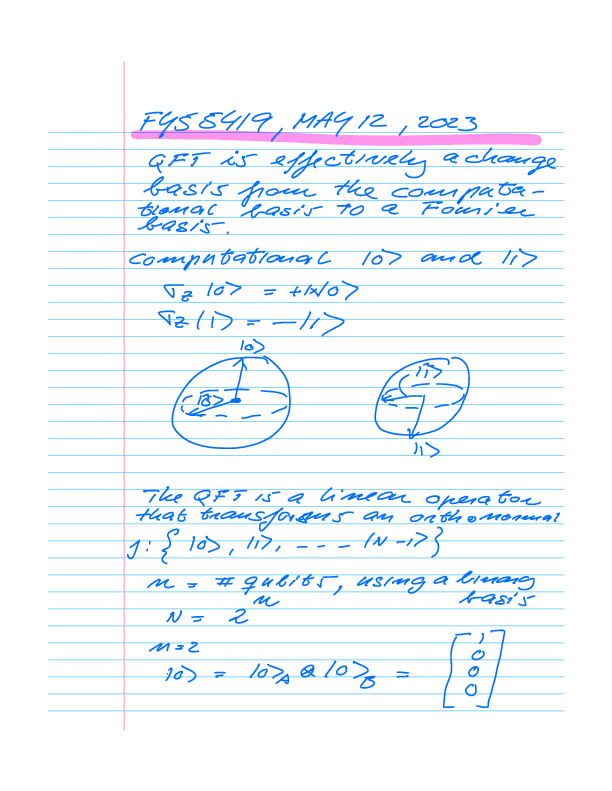 FYS5419, MAY 12, 2023
QFT is effectively a change
basis from the computa-
tional basis to a Fourier
basis.
Computational |0> and |1>
σz |0> = +1x|0>
σz |1> = -|1>
|0>
|0̃> |1̃>
|1>
The QFT is a linear operator
that transforms an orthonormal
j: { |0>, |1>, --- |N-1> }
n = # qubits, using a binary
basis
N = 2^n
n=2
|0> = |0>_A ⊗ |0>_B = [1
0
0
0]